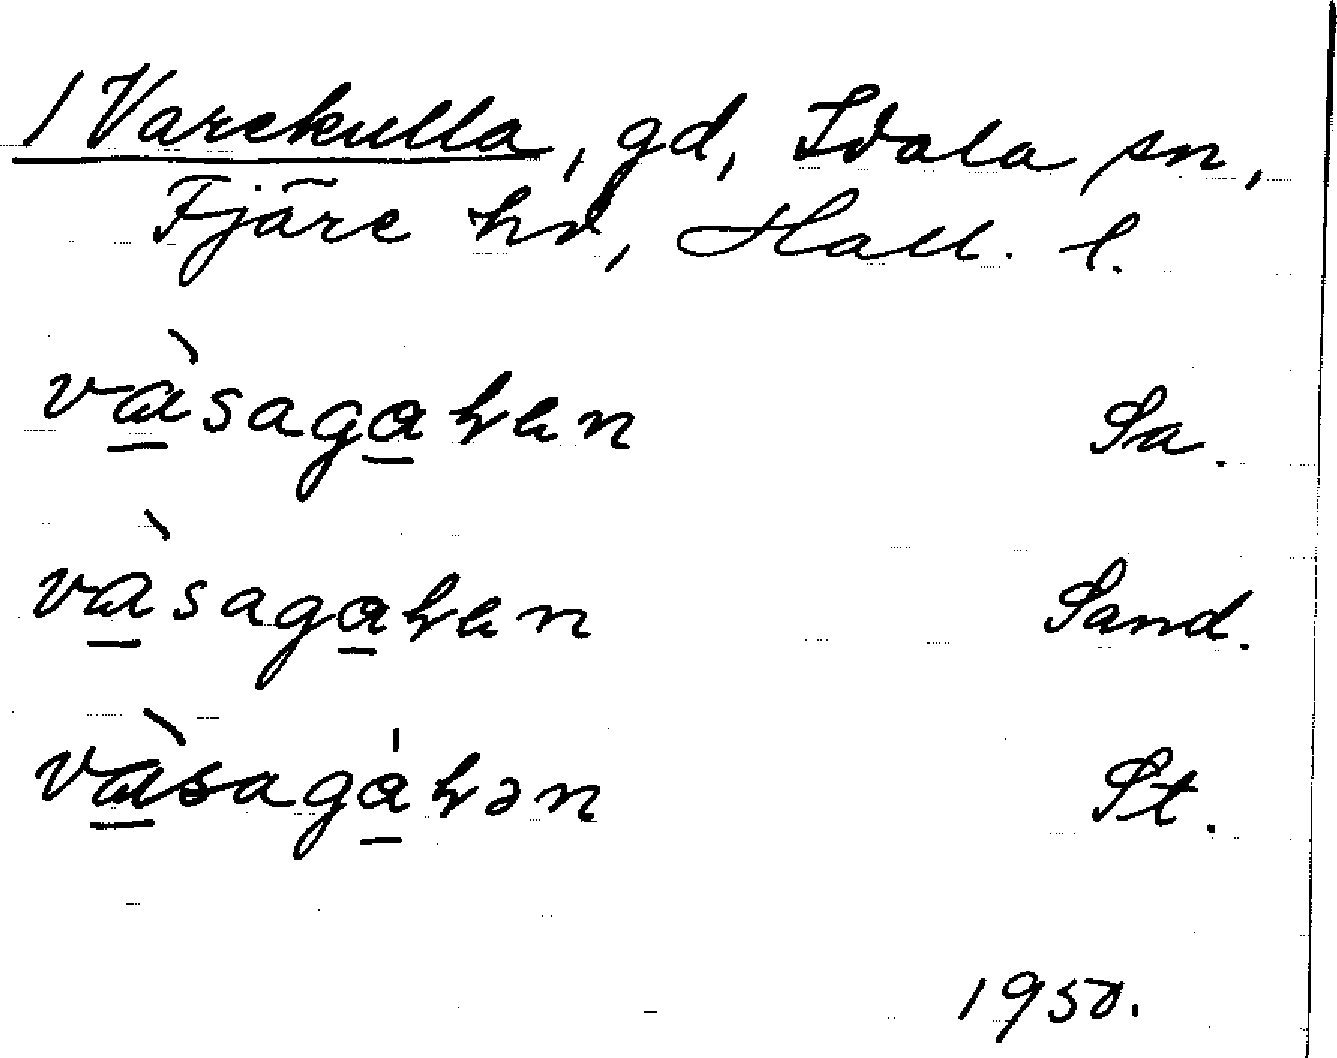 1 Varekulla, gd, Idala sn,
Fjäre hd, Hall. l.
và̱saga̱hen Sa.
và̱saga̱hen Sand.
và̱saga̱̍hən St.
1950.